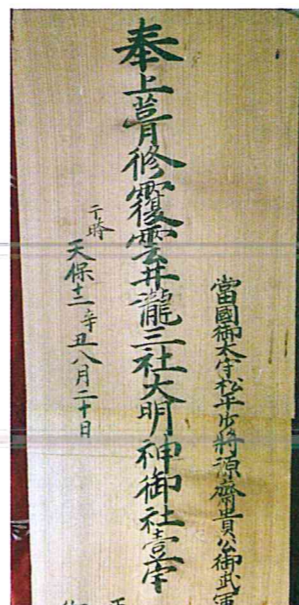 當國御太守松平少將源齋貴公御武運
奉上葺修覆雲井瀧三社大明神御社壹宇
于時
天保十二辛丑八月二十日